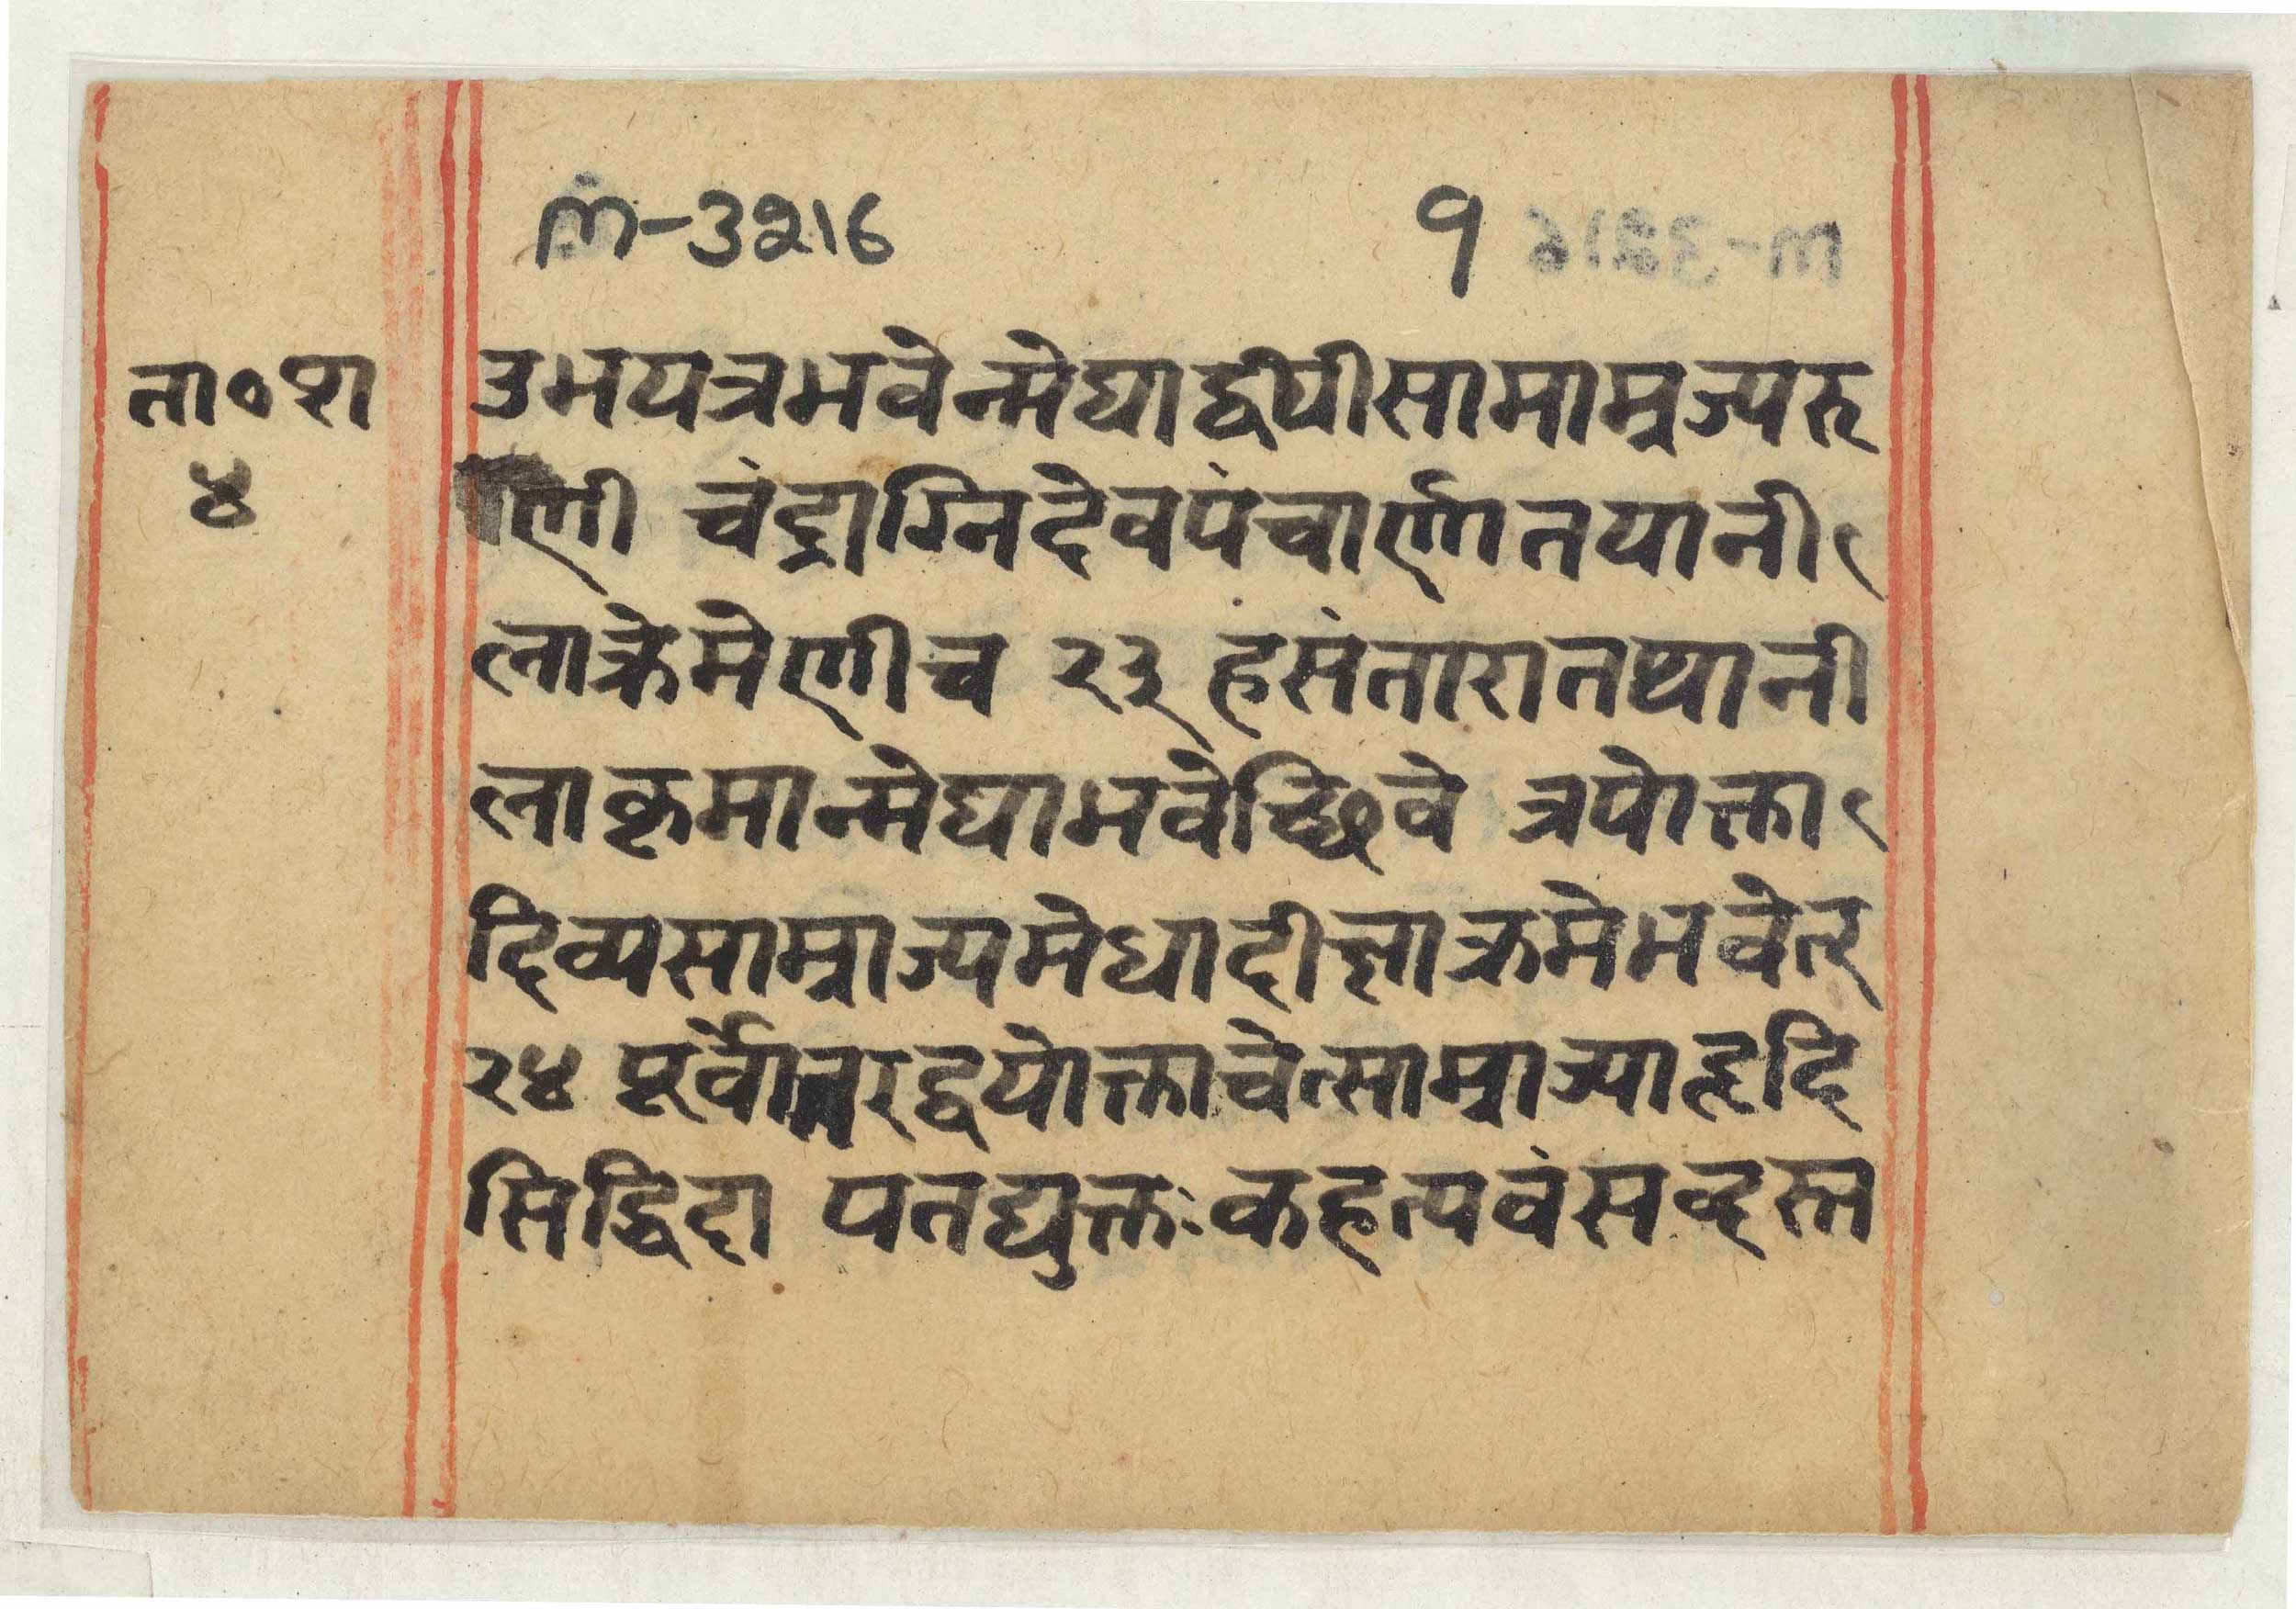 m-3216 १
ता०श उभयत्रभवेन्मेधाद्वीपीसामाम्रज्यरू
४ णी चंद्राग्निदेवपंचार्णातयानी
लाक्रेमेणीच २३ हसंतारातथानी
लाकृमान्मेधाभवेच्छिवे त्रपोक्ता
दिव्यसाम्राज्यमेधादीक्षाक्रमेभवेत्
२४ पूर्वोत्तरद्वयोक्ताचेत्साम्राज्याहृदि
सिद्धिदा पतद्युक्तःकहत्यवंस